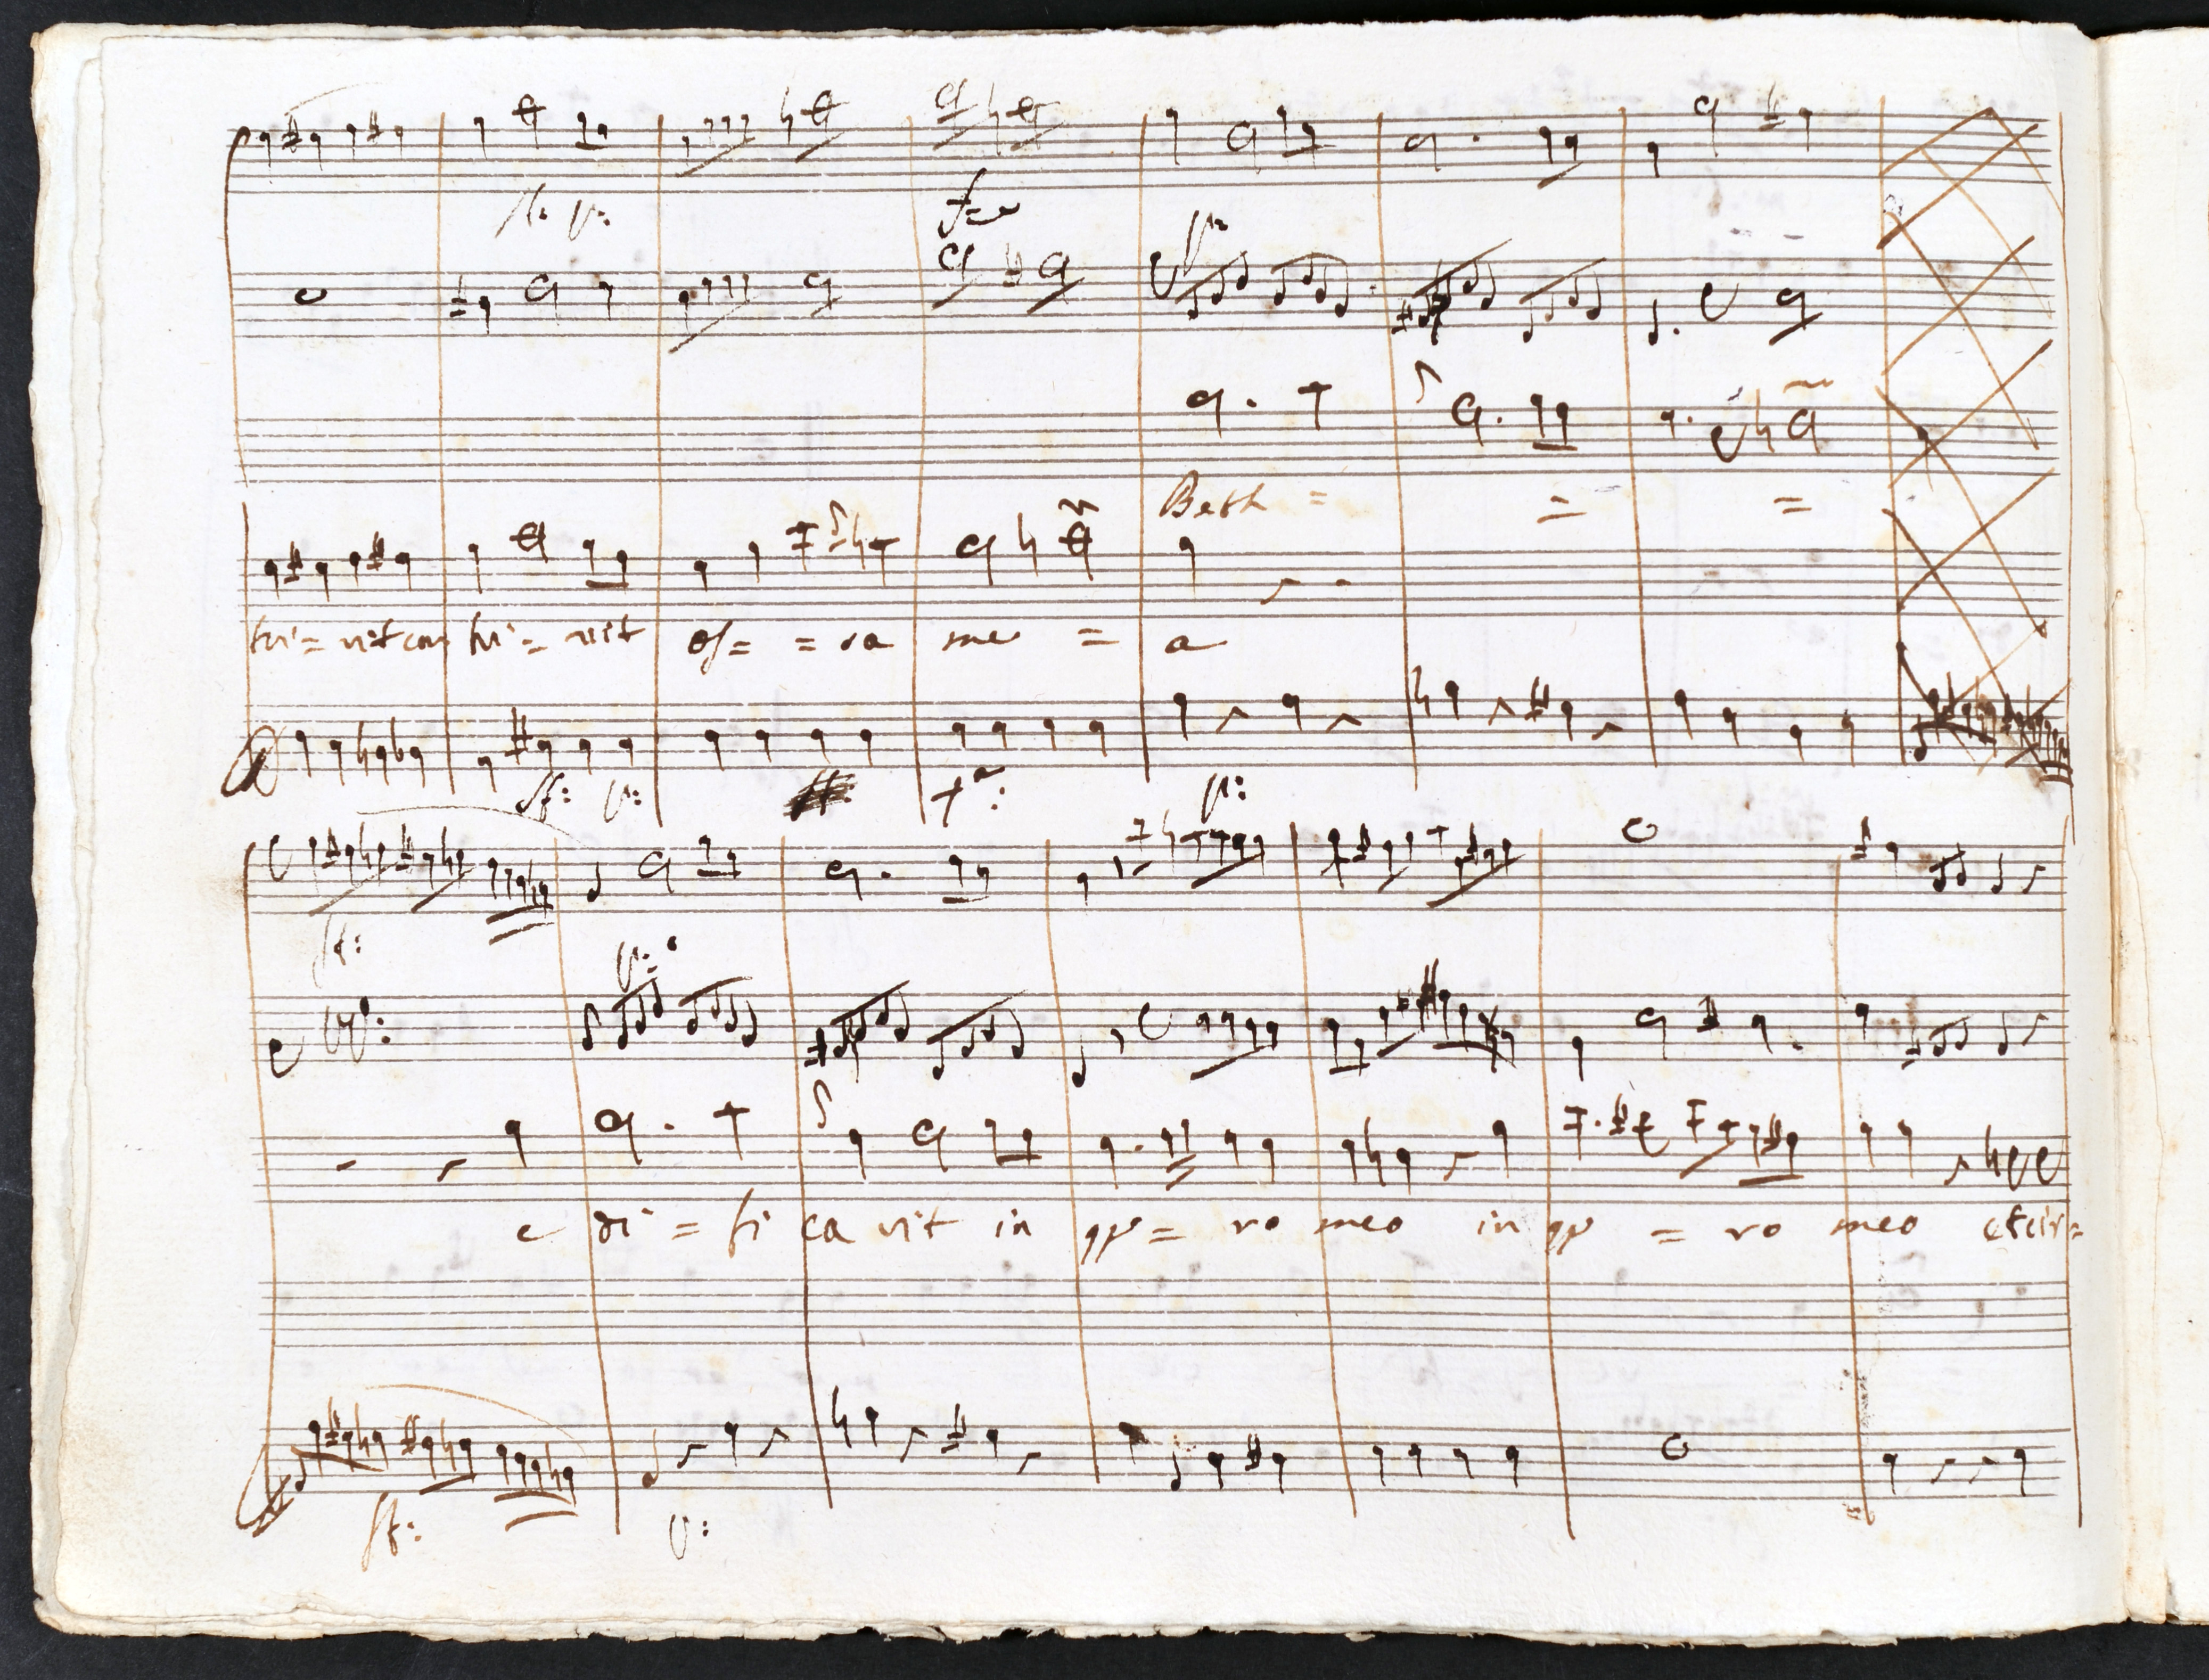 sf: p:
f=e
p:
Beth = = =
tri= vit con tri= vit os= = sa me = a
sf: p:
p:
sf:
p:
e di = fi ca vit in gy= ro meo in gy = ro meo et cir=
sf: p: